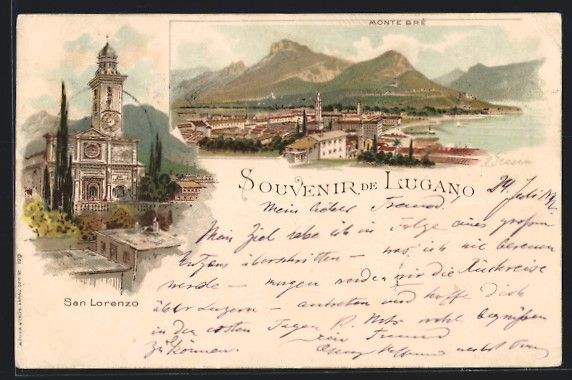 MONTE BRÈ
SOUVENIR DE LUGANO
San Lorenzo
24. Juli
Mein lieber Freund!
Mein Ziel habe ich in Folge eines großen
Entgens überschritten — was ich nie bereuen
werde — morgen werden wir die Rückreise
über Luzern — antreten und hoffe Dich
in den ersten Tagen wohl begrüßen
zu können. Dein Freund
nebst Frau